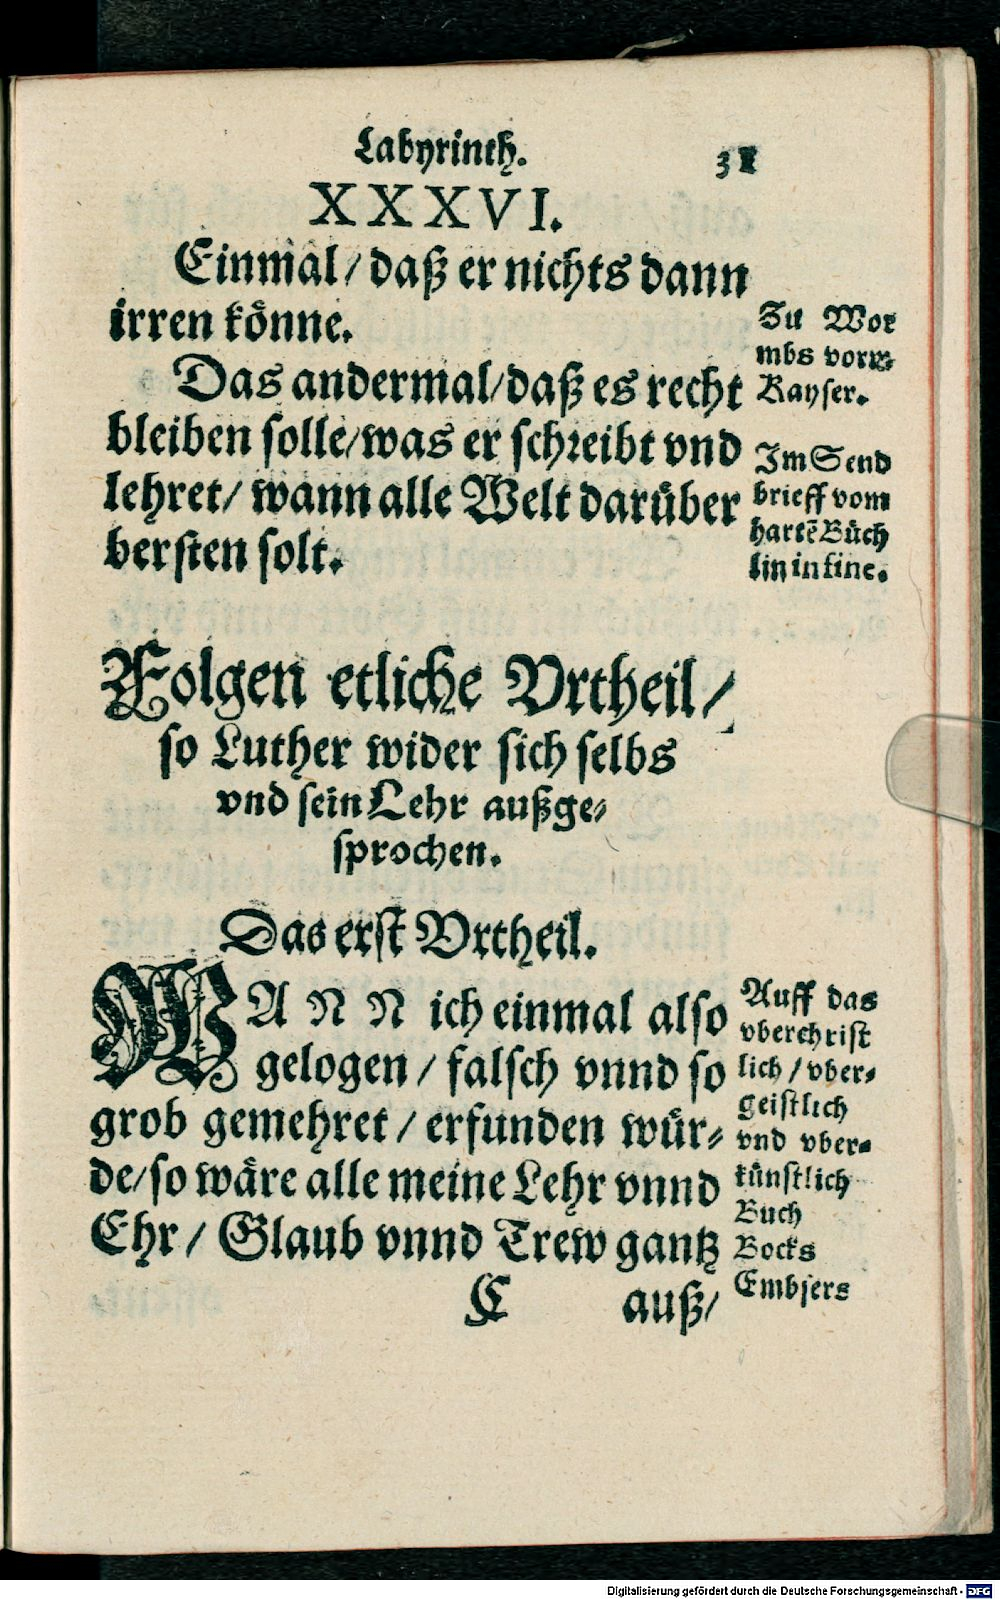 Labyrinth.
XXXVI.
Einmal/ daß er nichts dann
irren könne.
Zu Wor
mbs vorm
Kayser.
Das andermal/ daß es recht
bleiben solle/ was er schreibt vnd
lehret/ wann alle Welt darüber
bersten solt.
Im Send
brieff vom
hartẽ Büch
lin in fine.
Folgen etliche Vrtheil/
so Luther wider sich selbs
vnd sein Lehr außge-
sprochen.
Das erst Vrtheil.
WANN ich einmal also
gelogen/ falsch vnnd so
grob gemehret/ erfunden wür-
de/ so wäre alle meine Lehr vnnd
Ehr/ Glaub vnnd Trew gantz
Auff das
vberchrist
lich/ vber-
geistlich
vnd vber-
künstlich
Buch
Bocks
Embsers
C auß/
Digitalisierung gefördert durch die Deutsche Forschungsgemeinschaft - DFG